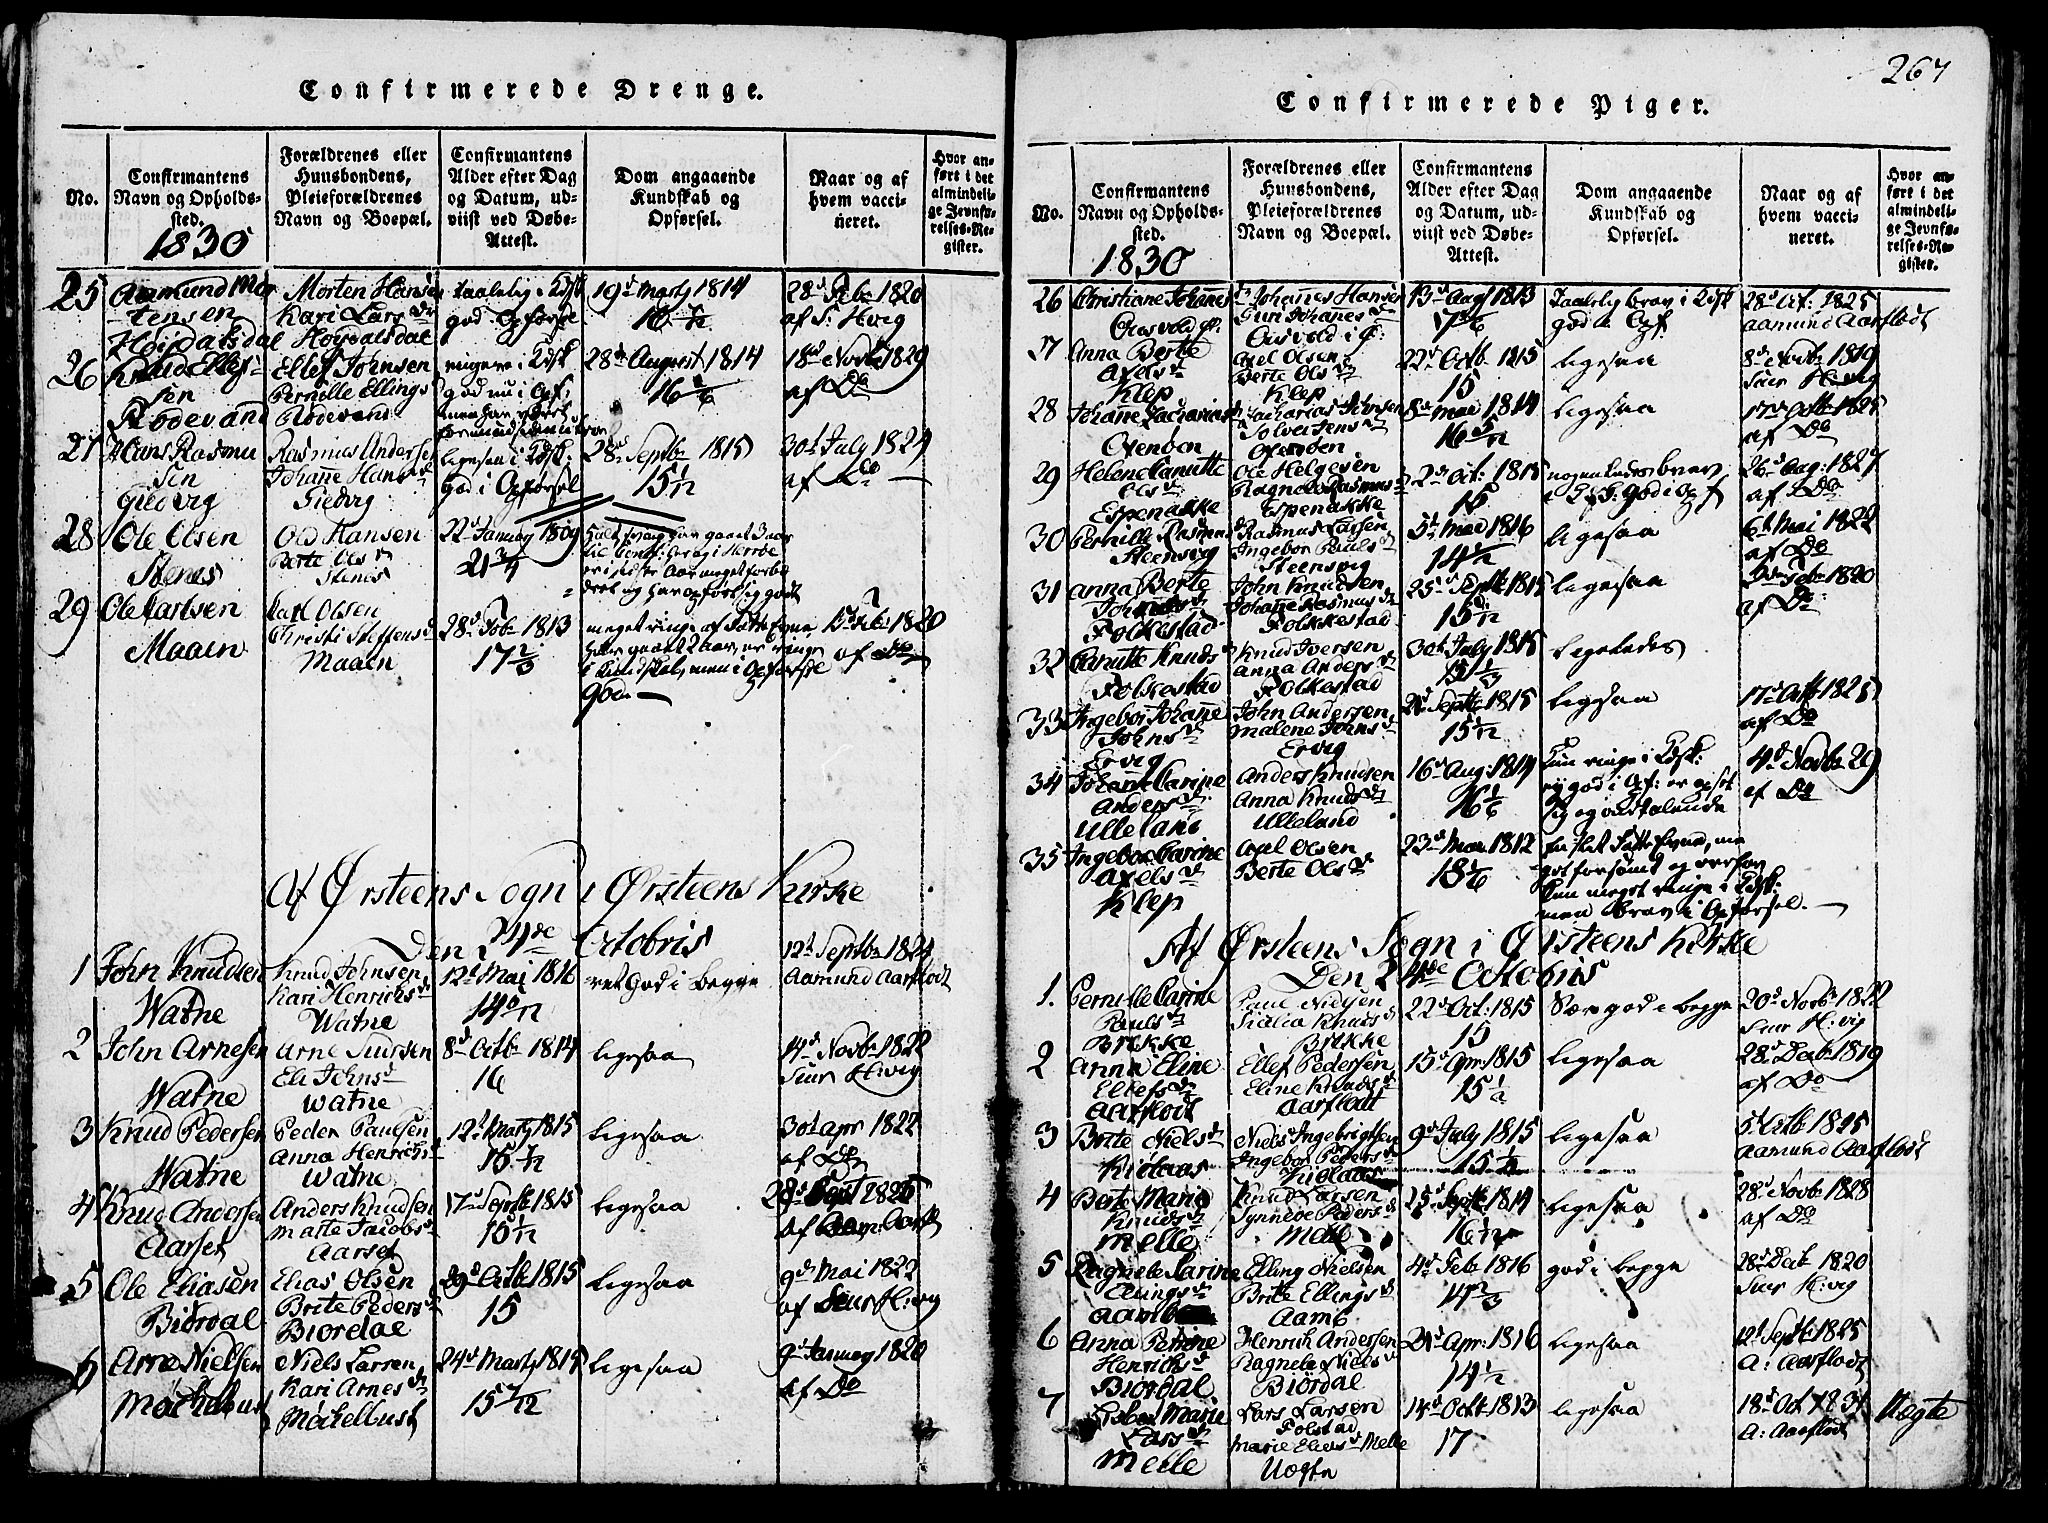 Confirmerede Drenge.
No.
Confirmantens
Navn og Opholds-
sted.
1830
Forældrenes eller
Huusbondens,
Pleieforældrenes
Navn og Boepæl.
Confirmantens
Alder efter Dag
og Datum, ud-
viist ved Døbe-
Attest.
Dom angaaende
Kundskab og
Opførsel.
Naar og af
hvem vacci-
neret.
Hvor an-
ført i det
almindeli-
ge Jevnfø-
relses-Re-
gister.
25
Aamund Mor
tensen
Hoydalsdal
Morten Hansen
Kari Lars dr
Hoydalsdal
taalelig i Kdsk
god Opførse
19d Marts 1814
16 7/12
28d Feb 1820
af S: Hvig
26
Knud Ellef
sen
Rødevand
Ellef Johnsen
Pernille Ellings
Rødevand
ringere i Kdsk
god nu i Opf,
28de August 1814
16 1/6
18d Novb 1829
af Do
27
Hans Rasmu
sen
Giedvig
Rasmus Anderse
Johanne Hans d
Giedvig
ligesaa i Kdsk:
God i Opførsel
28d Septbr 1815
15 1/12
30t July 1824
af Do
28
Ole Olsen
Stenes
Old Hansen
Berte Ols dr
Stenes
22d January 1809
21 3/4
29
Ole Carlsen
Maaen
Carl Olsen
Christi Steffens d
Maaen
28d Feb 1813
17 2/3
meget ringe af Fatte Evne,
har gaaet 2 aar, er ringe
i Kundskab, men i Opførsle
god.
15d Feb 1820
af Do
Af Ørsteens Sogn i Ørsteens Kirke
Den 24de Octobris
1
John Knudsen
Watne
Knud Johnsen
Kari Henrichs d
Watne
12t Mai 1816
14 5/12
ret God i begge
12t Septbr 1824
Aamund Aarflodt
2
John Arnesen
Watne
Arne Siursen
Eli Johns d
Watne
8d Octb 1814
16
ligesaa
14d Novb 1822
Siur Hvig
3
Knud Pedersen
Watne
Peder Paulsen
Anna Henrichs
Watne
12t Marts 1815
15 7/12
ligesaa
30t apr 1822
af Do
4
Knud Andersen
Aarset
Anders Knudsen
Matte Jacobs d
Aarset
17d Septb 1815
15 1/12
ligesaa
28d Sept 1825
af Aam: Aarfl
5
Ole Eliasen
Biørdal
Elias Olsen
Brite Peders d
Biørdal
29d Octb 1815
15
ligesaa
9d Mai 1822
af Siur Hvig
6
Arne Nielsen
Møchelbust
Niels Larsen
Kari Arnes dr
Møchelbust
24d Marts 1815
15 7/12
ligesaa
9d January 1820
af Do
267
Confirmerede Piger.
No.
Confirmantens
Navn og Opholds-
sted.
1830
Forældrenes eller
Huusbondens,
Pleieforældrenes
Navn og Boepæl.
Confirmantens
Alder efter Dag
og Datum, ud-
viist ved Døbe-
Attest.
Dom angaaende
Kundskab og
Opførsel.
Naar og af
hvem vacci-
neret.
Hvor an-
ført i det
almindeli-
ge Jevnfø-
relses-Re-
gister.
26
Christiane Johannes dr
Johannes Hansen
Guri Johannes dr
13d Augt 1813
17 1/6
Taalelig brav i Kdsk
god i Opf
28d Oct: 1825
Aamund Aarflodt
27
Anna Berte
Axels dr
Klep
Axel Olsen
Berte Ols dr
Klep
22d Octb 1815
15
ligesaa
8d Novb 1819
Siur Hvig
28
Johanne Zacharias dr
Zacharias Johnsen
8d Mai 1814
16 5/12
ligesaa
17d Octb 1825
af Do
29
Helene Canutte
Ols dr
Espenakke
Ole Helgesen
Ragnele Rasmus d
Espenakke
2d Oct: 1815
15
nogenledes brav
26d Aug: 1827
af Do
30
Pernille Rasmus dr
Steensvig
Rasmus Larsen
Ingebor Pauls d
Steensvig
5t Mai 1816
14 1/2
ligesaa
6t Mai 1822
af Do
31
Anna Berte
Johns d
Folkestad
John Knudsen
Johanne Rasmus d
Folkkestad
25d Septb 1815
15 1/12
ligesaa
Feb 1820
af Do
32
Canutte Knuds d
Folkestad
Knud Iversen
Anna Anders d
Folkestad
30t July 1815
15 1/3
ligeledes
33
Ingebor Johanne
Johns d
Ervig
John Andersen
Malene Johns d
Ervig
Septb 1815
15 1/12
ligesaa
17d Octb 1825
af Do
34
Johanne Carine
Anders dr
Ulleland
Anders Knudsen
Anna Knuds dr
Ulleland
16d Aug: 1814
16 1/6
4d Novb 29
af Do
35
Ingebor Carine
Axels d
Klep
Axel Olsen
Berte Ols d
23d Mar 1812
18 1/6
men Brav i Opførsel.
Af Ørsteens Sogn i Ørsteens Kirke
Den 24de Octobris
1.
Pernille Carine
Pauls dr
Brekke
Paul Nielsen
Sidlia Knuds d
Brekke
22d Oct: 1815
15
Særgod i begge
20d Novb 1822
Siur Hvig
2
Anna Eline
Ellefs dr
Aarflodt
Ellef Pedersen
Eline Knuds d
Aarflodt
15d Apr: 1815
15 1/2
ligesaa
28d Decb 1819
af Do
3
Brite Niels dr
Kiølaas
Niels Ingebrigtsen
Ingebor Peders d
Kiølaas
9d July 1815
15 1/4
ligesaa
5t Octb 1825
Aamund Aarflodt
4
Berte Marie
Knuds d
Melle
Knud Larsen
Synneve Peders d
Melle
25d Septb 1814
16 1/12
ligesaa
28d Novb 1828
af Do
5
Ragnele Carine
Ellings d
Aamb
Elling Nielsen
Brite Ellings d
Aamb
4d Feb 1816
14 2/3
god i begge
28d Decb 1820
Siur Hvig
6
Anna Petrine
Henrichs d
Biørdal
Henrich Andersen
Ragnele Niels d
Biørdal
Apr: 1816
14 1/2
ligesaa
12t Septb 1825
A: Aarflodt
7
Marie
Lars d
Melle
Lars Larsen
Folstad
Marie Elias d Melle
Uægte
14d Octb 1813
17
ligesaa
18d Oct
A: Aarflodt
Uægte